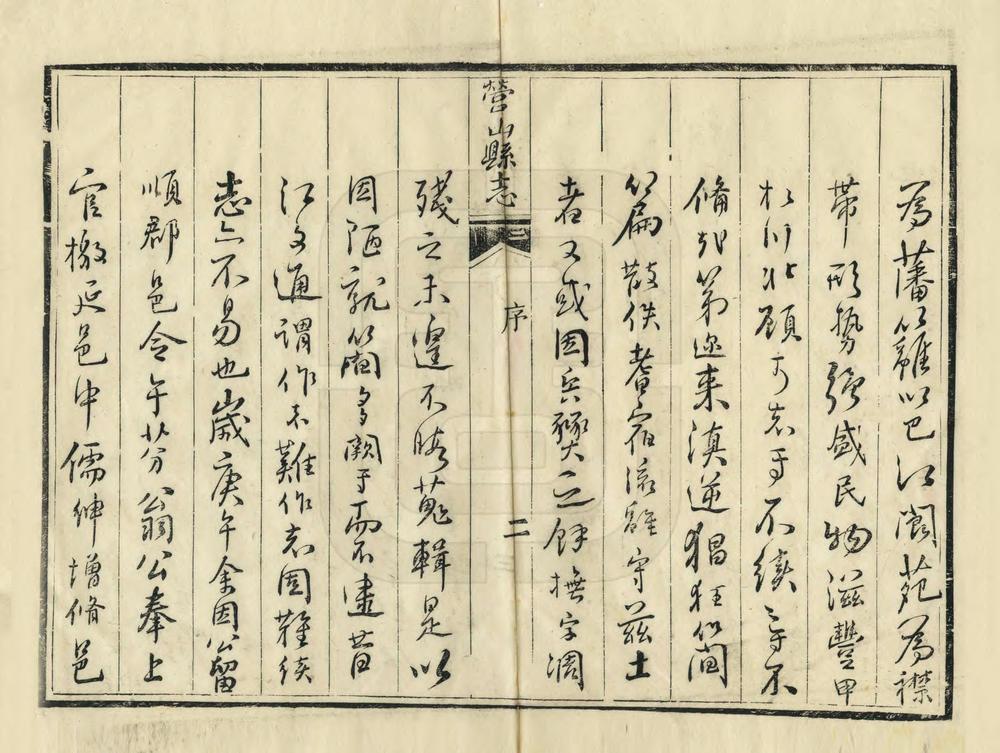 為藩籬以巴江閬苑為襟
帶形勢強盛民物滋豐甲
於川北顧可志乎不續之乎不
脩哉第邇來滇逆猖狂簡
篇散佚耆宿流離守茲土
者又或因兵燹之餘撫字凋
營山縣志
序
二
殘之未遑不暇蒐輯是以
因陋就簡多闕乎而不逮昔
江文通謂作史難作志固難續
志亦不易也歲庚午余因公留
順郡邑令午芬翁公奉上
官檄延邑中儒紳增脩邑